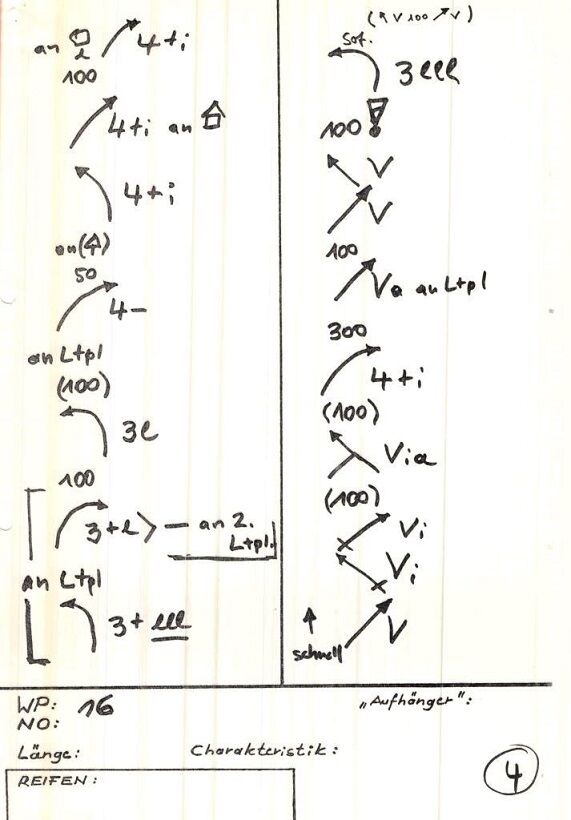 an
100
4+i
4+i an
4+i
an( )
50
4-
an Ltpl
(100)
3l
100
3+l> — an 2.
Ltpl.
an Ltpl
3+lll
( V 100 V)
sof.
3lll
100
V
V
100
Va an Ltpl
300
4+i
(100)
Via
(100)
Vi
Vi
V
schnell
WP: 16
NO:
„Aufhänger":
Länge:
Charakteristik:
REIFEN:
4